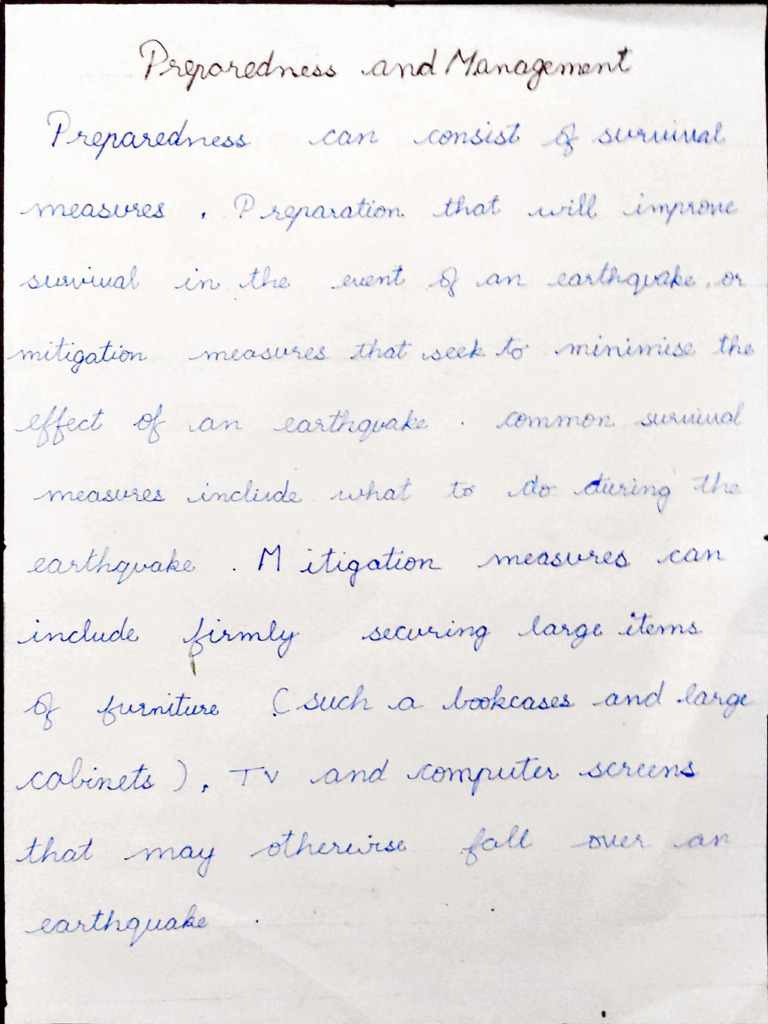 Preparedness and Management
Preparedness can consist of survival
measures . Preparation that will improve
survival in the event of an earthquake, or
mitigation measures that seek to minimise the
effect of an earthquake . common survival
measures include what to do during the
earthquake . Mitigation measures can
include firmly securing large items
of furniture (such a bookcases and large
cabinets), TV and computer screens
that may otherwise fall over an
earthquake .